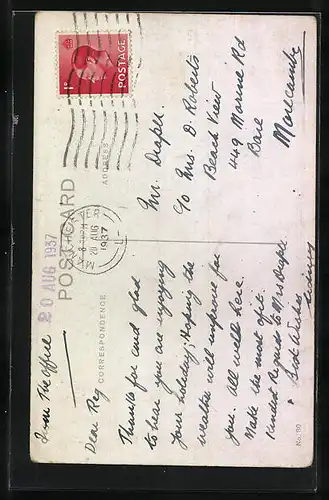 POST CARD
20 AUG 1937
POSTAGE
1D
20 AUG
1937
CORRESPONDENCE
ADDRESS
From The Office
Dear Reg
Thanks for card glad
to hear you are enjoying
your holiday; Hoping the
weather will improve for
you. All well here.
Make the most of it.
Kindest Regards to Mrs Draper
Best Wishes
Mr. Draper.
c/o Mrs. D. Roberts
Beach View
449 Marine Rd
Bare
Morecambe
No. 90